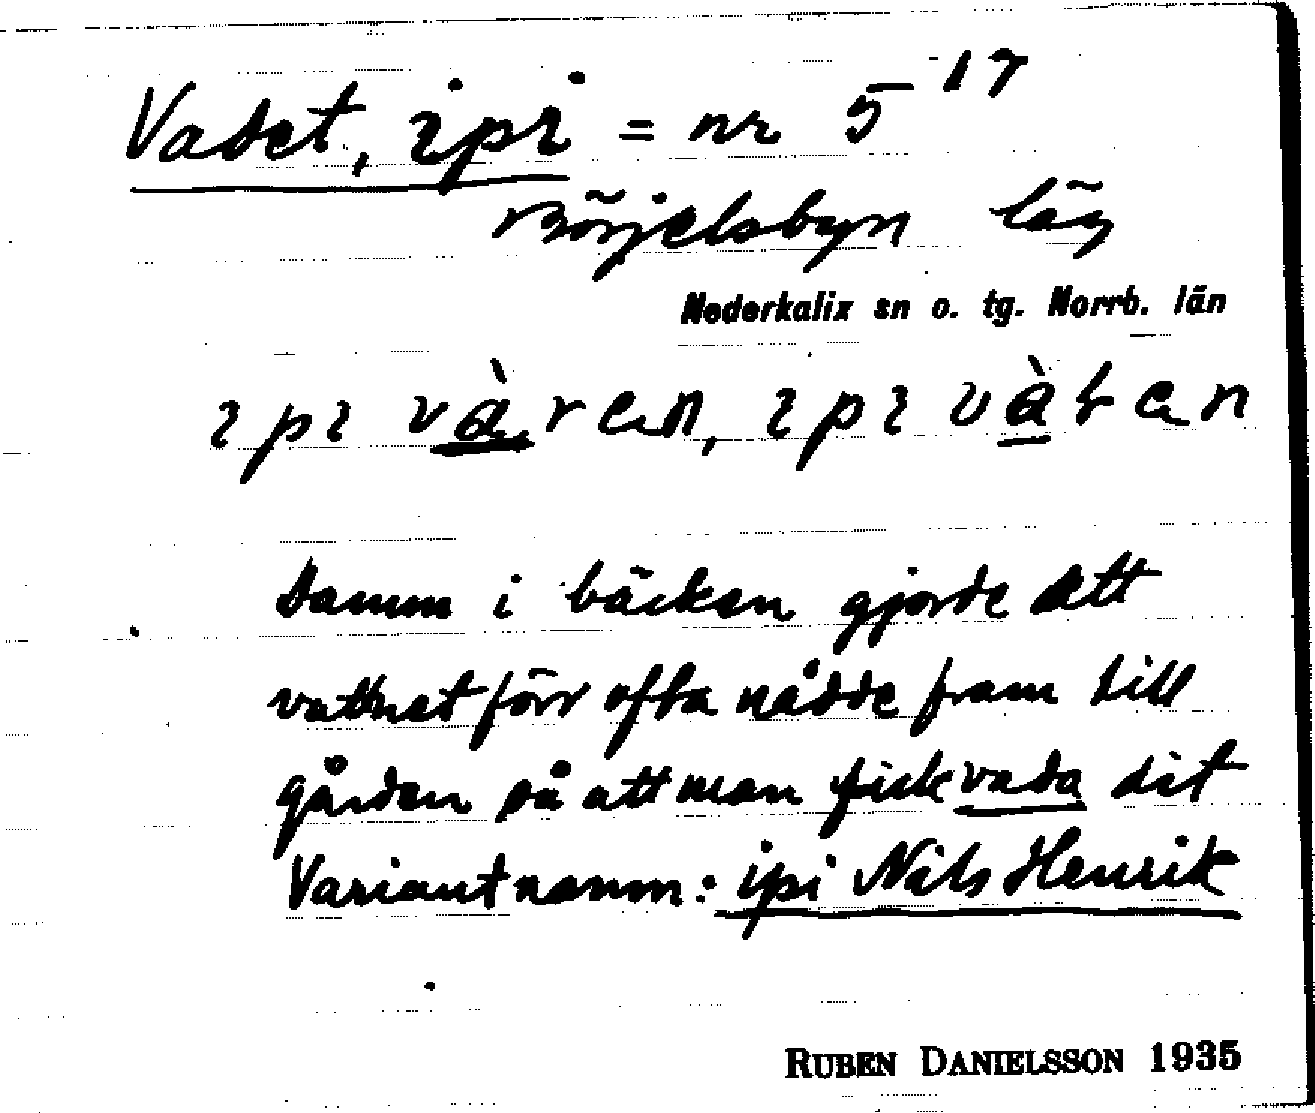 Vadet, ipi = nr 5 17
Börjelsbyn läg
Nederkalix sn o. tg. Norrb. län
ipi
Damm i bäcken gjorde att
vattnet förr ofta nådde fram till
gården så att man fick vada dit
Variantnamn: ipi Nils Henrik
RUBEN DANIELSSON 1935